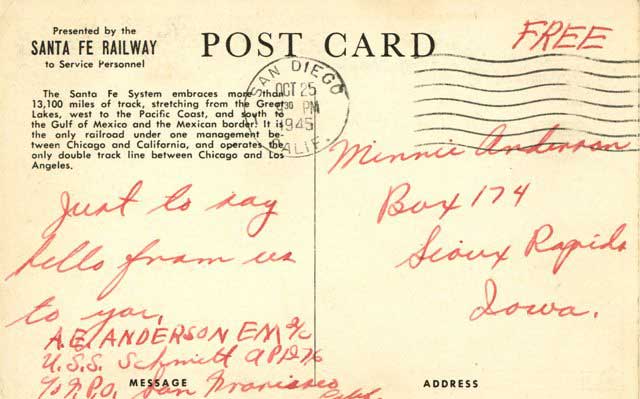 Presented by the
SANTA FE RAILWAY
to Service Personnel
POST CARD
FREE
The Santa Fe System embraces more than
13,100 miles of track, stretching from the Great
Lakes, west to the Pacific Coast, and south to
the Gulf of Mexico and the Mexican border. It is
the only railroad under one management be-
tween Chicago and California, and operates the
only double track line between Chicago and Los
Angeles.
SAN DIEGO
OCT 25
30 PM
1945
CALIF.
Minnie Anderson
Box 174
Sioux Rapids
Iowa.
Just to say
hello from us
to you,
A.E. ANDERSON EM 2/c
U.S.S. Schmitt APD 76
c/o F.P.O. San Francisco
Calif.
MESSAGE
ADDRESS